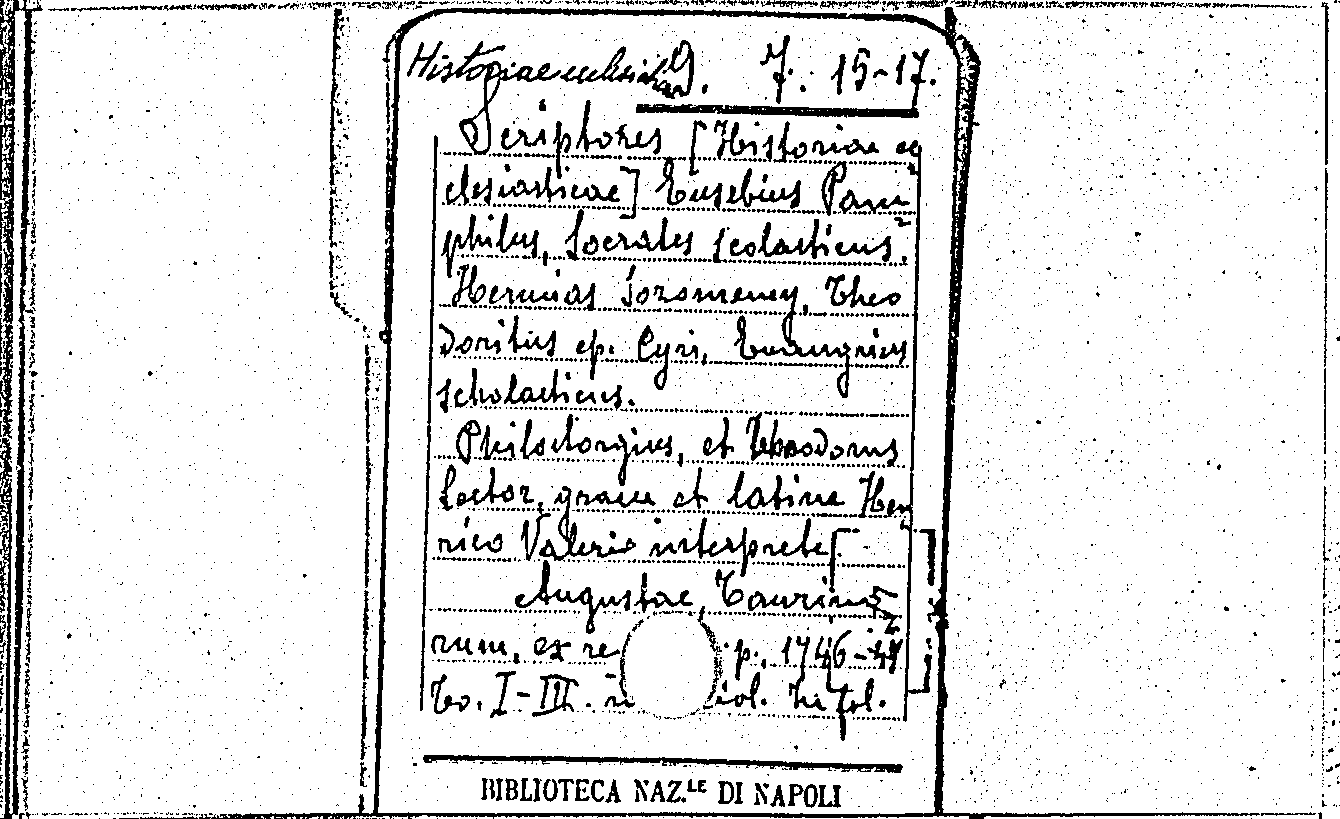 Historiae ecclesiasticae D. 7. 15-17.
Scriptores [Historiae ec
clesiasticae] Eusebius Pam
philus, Socrates Scolasticus,
Hermias Sozomenus, Theo
doritus ep. Cyri, Evangrius
scholasticus.
Philostorgius, et Theodorus
Lector, graece et latine Hen
rico Valesio interprete.
Augustae, Taurino
rum, ex re p. 1746-47
To. I-III. in fol.
BIBLIOTECA NAZ.LE DI NAPOLI